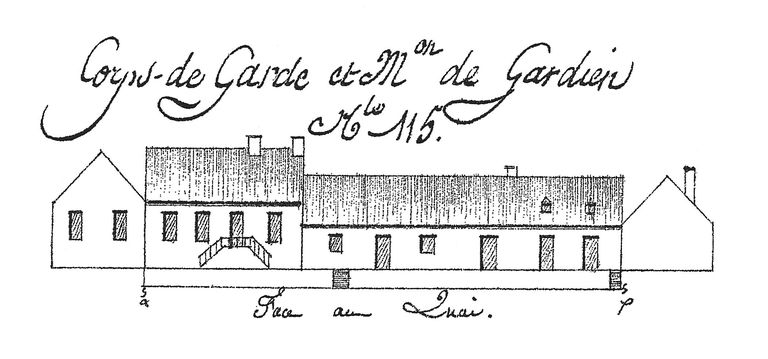 Corps-de Garde et Mon de Gardien
No 115.
a p
Face au Quai.